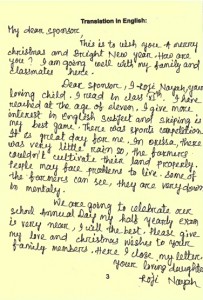 Translation in English:
My dear sponsor,
This is to wish you A merry
christmas and bright New year. How are
you? I am going well with my family and
classmates here.
Dear sponsor, I Roji Nayak your
loving child. I read in class VIth. I have
reached at the age of eleven. I give more
interest in English subject and skiping is
my best game. There was sports competition.
It is great day for me. In orissa, there
was very little rain so, the farmers
couldn't cultivate their land properly.
People may face problems to live. Some of
the farmers can see, they are very down
in mentaly.
We are going to celebrate our
school Annual Day my half yearly exam
is very near. I will the best. Please give
my love and christmas wishes to your
family members. Here I close my letter.
Your loving daughter
Roji Nayak
3